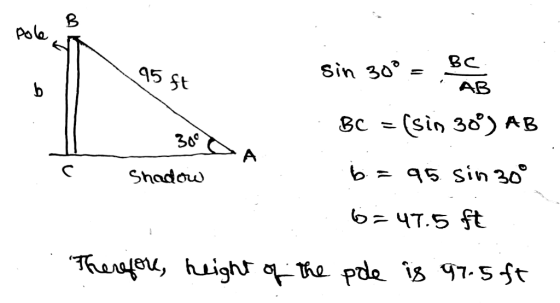 B
Pole
95 ft
b
30°
A
C
Shadow
sin 30° = BC / AB
BC = (sin 30°) AB
b = 95 sin 30°
b = 47.5 ft
Therefore, height of the pole is 97.5 ft